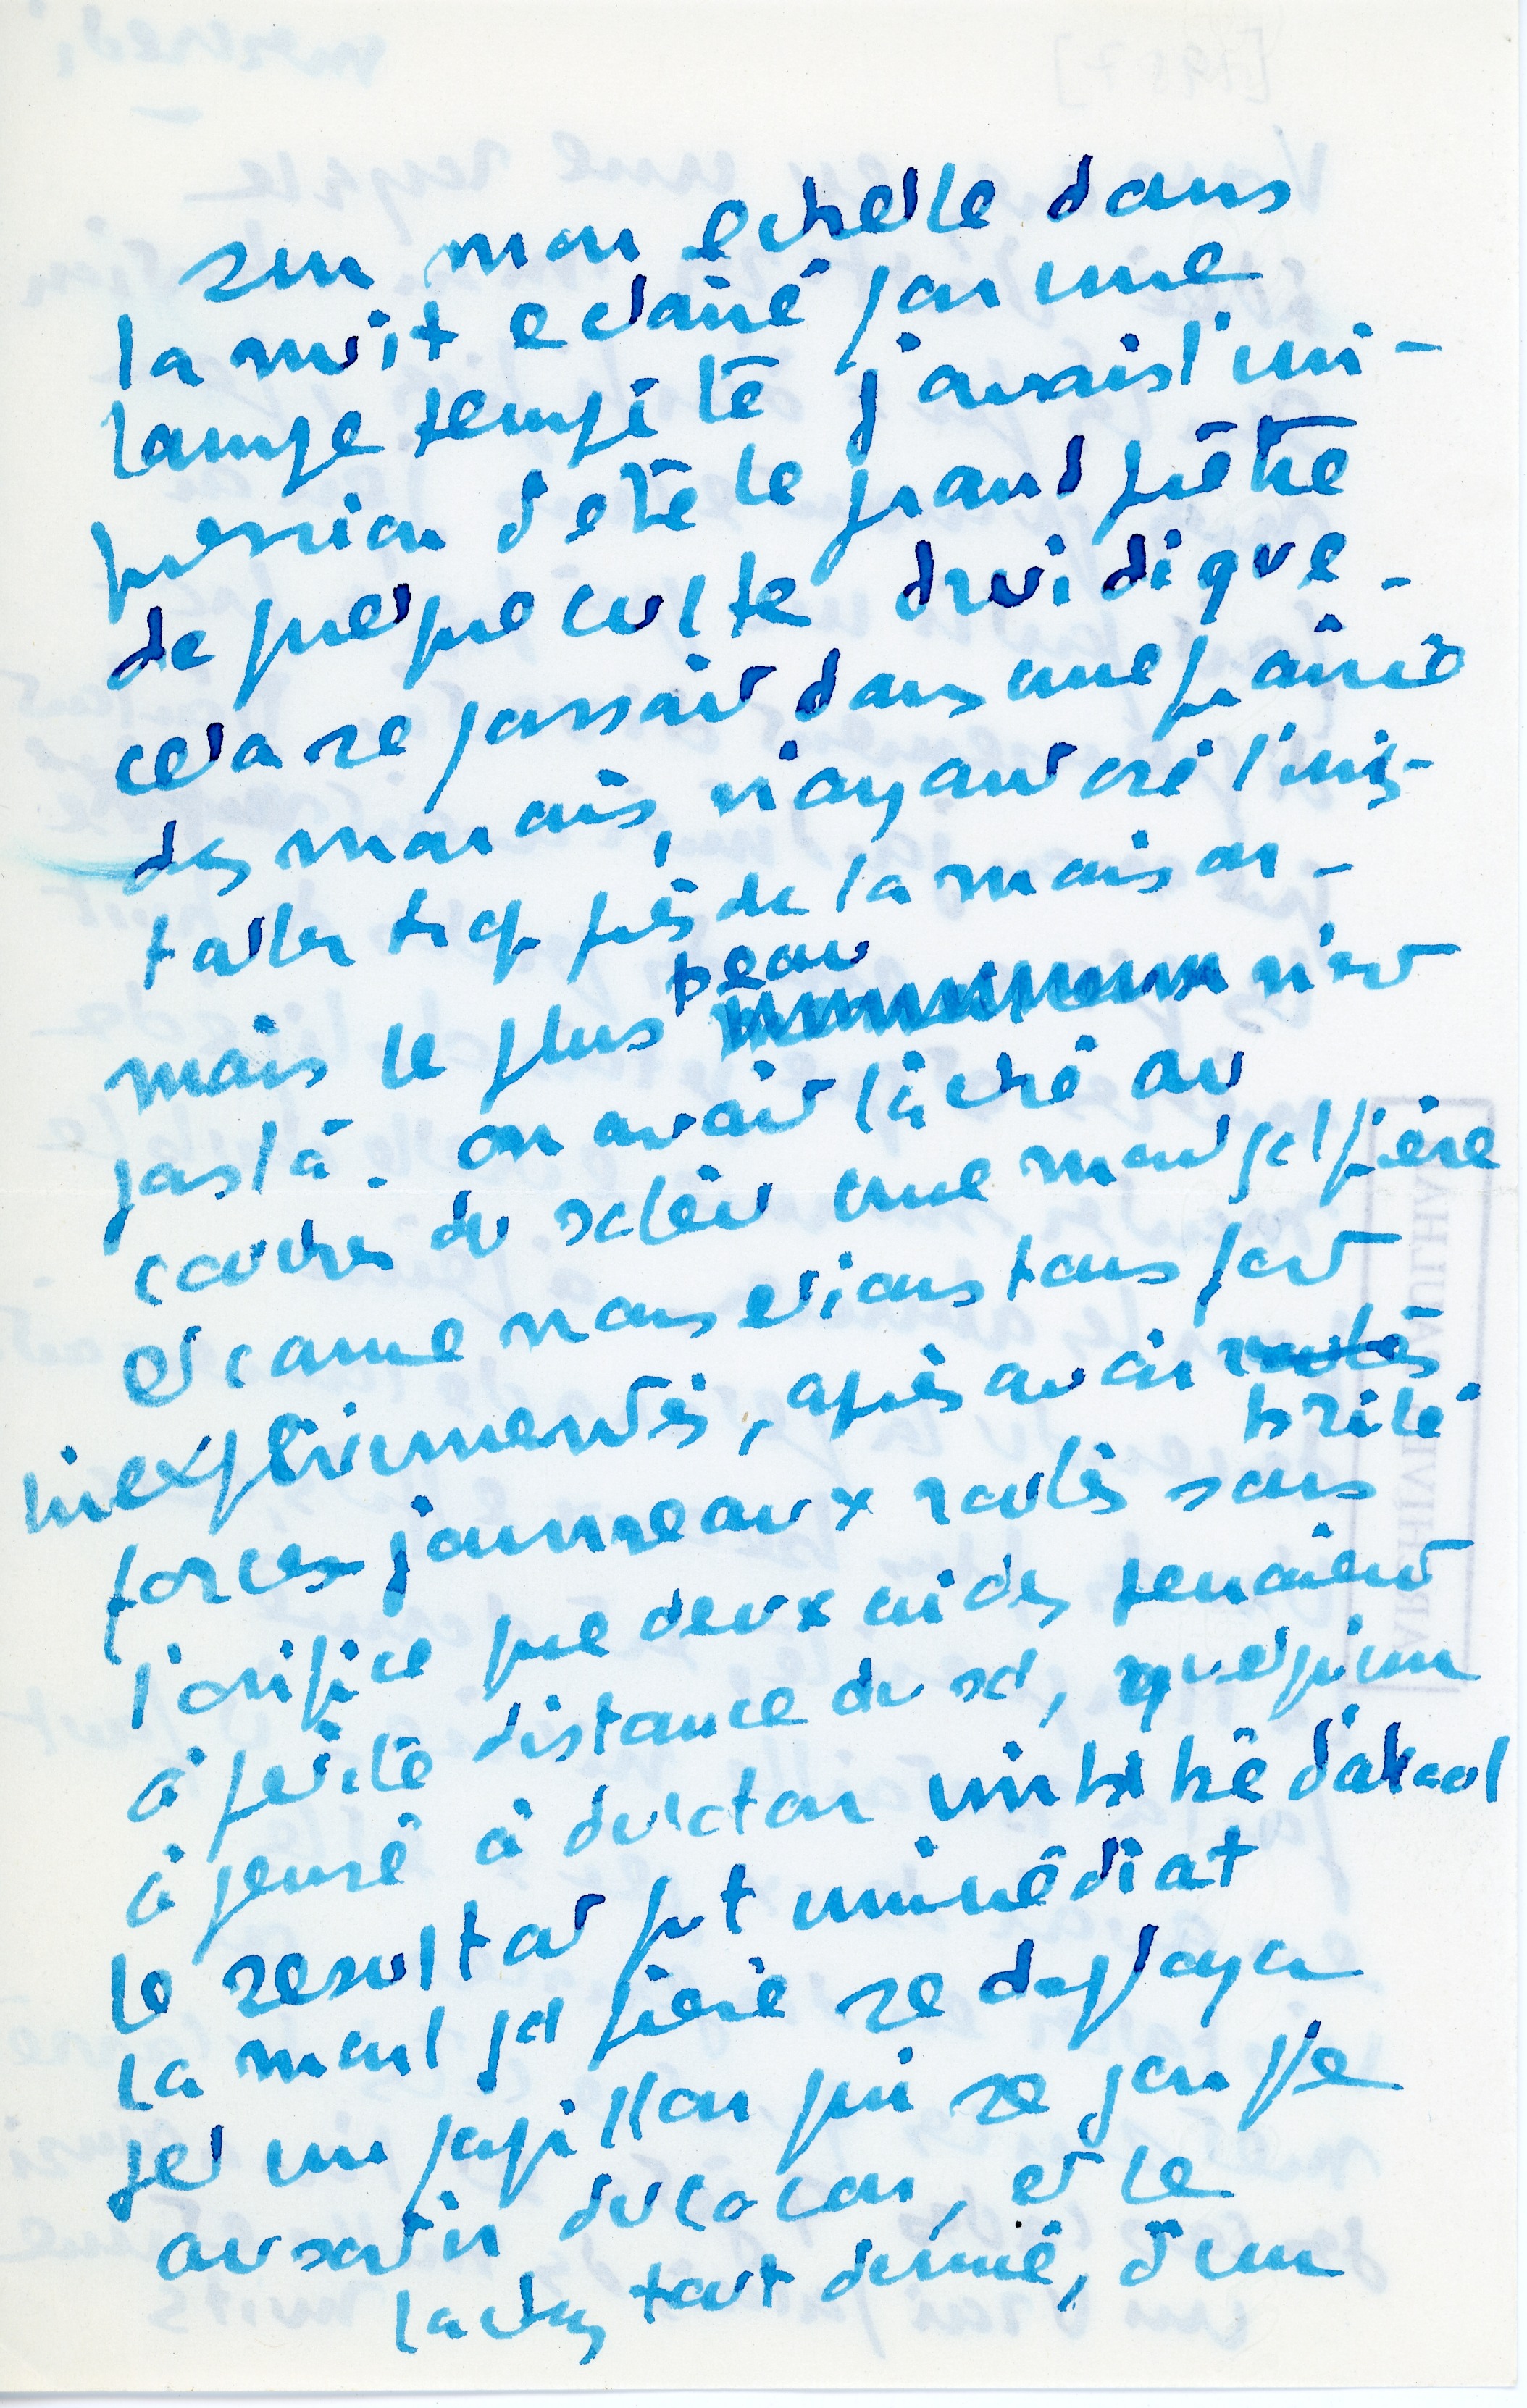 sur mon echelle dans
la nuit eclairé par une
lampe tempête j'avais l'im-
pression d'etre le grand prêtre
de quelque culte druidique -
cela se passait dans une prairie
des marais, n'ayant osé l'ins-
taller trop près de la maison -
mais le plus beau n'est
pas là. on avait lâché au
coucher du soleil une montgolfière
et comme nous etions tous fort
inexpérimentés, après avoir roulés
brûlé
force journeaux roulés sous
l'orifice que deux aides tenaient
à petite distance du sol, quelqu'un
à pensé à du coton imbibé d'alcool
le resultat fut immédiat
la montgolfière se deploya
tel un papillon qui se gonfle
au sortir du cocon, et le
lachez tout donné, d'un